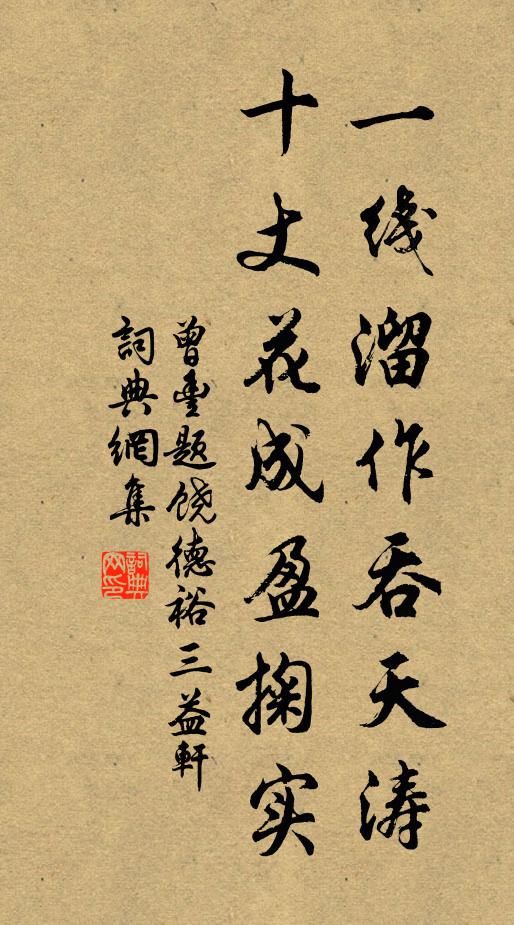 一线溜作吞天涛
十丈花成盈掬实
曾丰题饶德裕三益軒
詞典網集
詞典網印